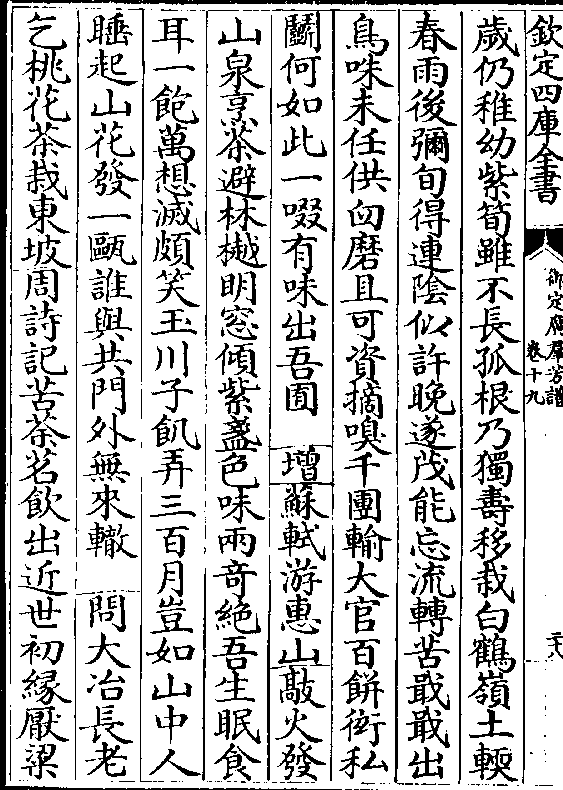 欽定四庫全書
御定廣羣芳譜
卷十九
二十八
歲仍稚幼紫筍雖不長孤根乃獨壽移栽白鶴嶺土輭
春雨後彌旬得連陰似許晚遂茂能忘流轉苦戢戢出
鳥咮未任供臼磨且可資摘嗅千團輸大官百餅衒私
鬬何如此一啜有味出吾囿 增蘇軾游惠山敲火發
山泉烹茶避林樾明窓傾紫盞色味兩奇絶吾生眠食
耳一飽萬想滅頗笑玉川子飢弄三百月豈如山中人
睡起山花發一甌誰與共門外無來轍 問大冶長老
乞桃花茶栽東坡周詩記苦茶茗飲出近世初緣厭梁